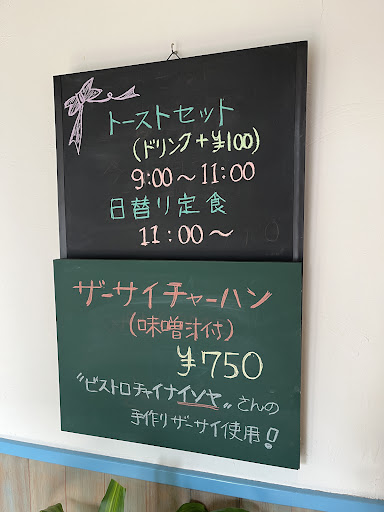 トーストセット
(ドリンク+¥100)
9:00〜11:00
日替り定食
11:00〜
ザーサイチャーハン
(味噌汁付)
¥750
"ビストロチャイナイソヤ"さんの
手作りザーサイ使用!